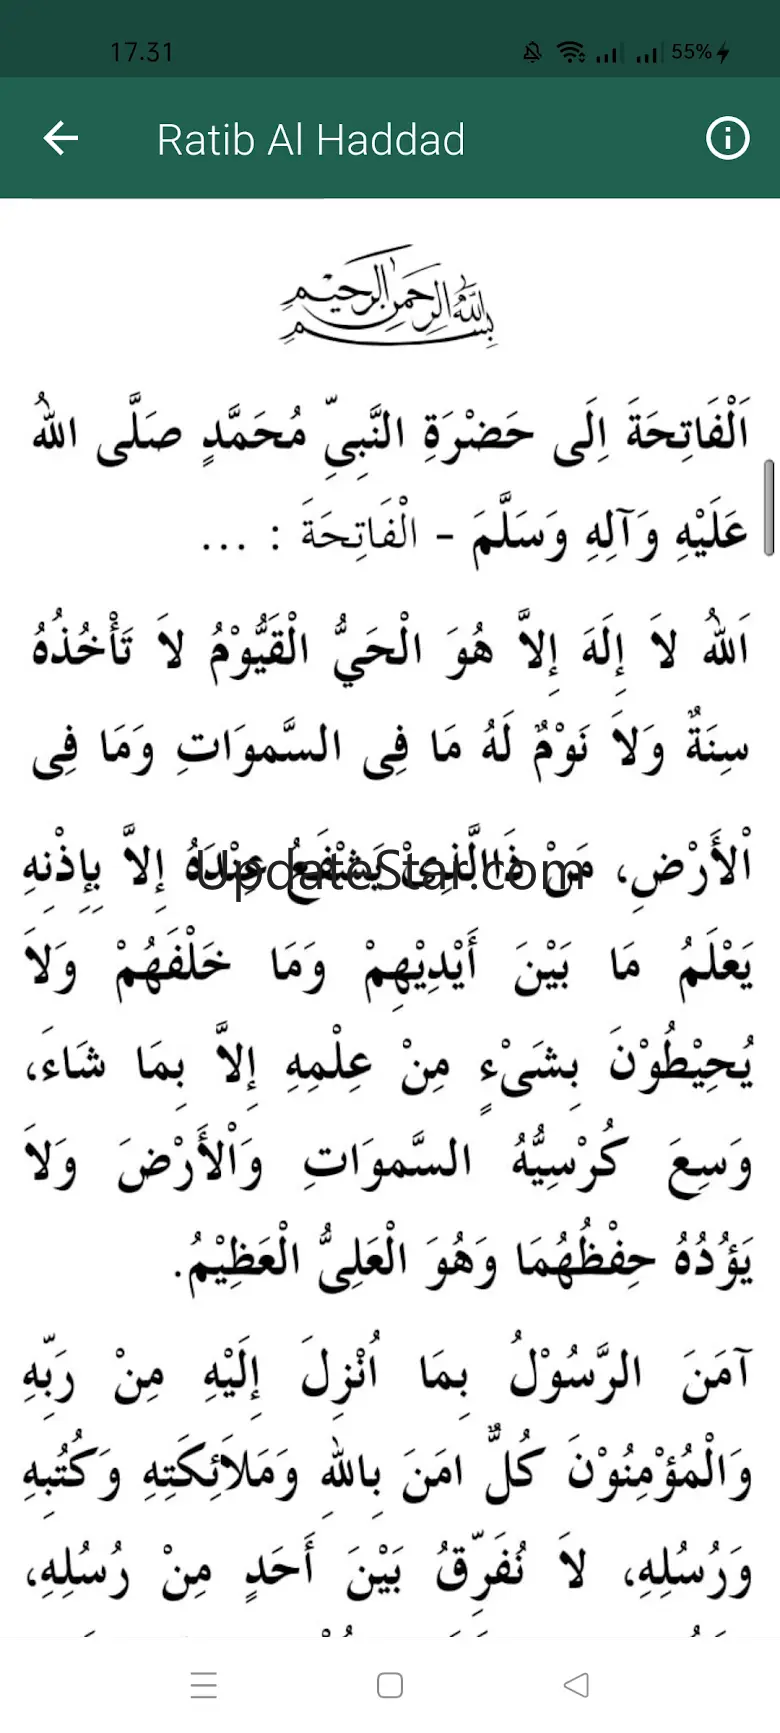 17.31
55%
Ratib Al Haddad
بِسْمِ اللهِ الرَّحْمنِ الرَّحِيْمِ
اَلْفَاتِحَةَ اِلَى حَضْرَةِ النَّبِيِّ مُحَمَّدٍ صَلَّى اللهُ
عَلَيْهِ وَآلِهِ وَسَلَّمَ - الْفَاتِحَةَ : ...
اَللهُ لاَ إِلَهَ إِلاَّ هُوَ الْحَيُّ الْقَيُّوْمُ لاَ تَأْخُذُهُ
سِنَةٌ وَلاَ نَوْمٌ لَهُ مَا فِى السَّموَاتِ وَمَا فِى
اْلأَرْضِ، مَنْ ذَاالَّذِيْ يَشْفَعُ عِنْدَهُ إِلاَّ بِإِذْنِهِ
UpdateStar.com
يَعْلَمُ مَا بَيْنَ أَيْدِيْهِمْ وَمَا خَلْفَهُمْ وَلاَ
يُحِيْطُوْنَ بِشَىْءٍ مِنْ عِلْمِهِ إِلاَّ بِمَا شَاءَ،
وَسِعَ كُرْسِيُّهُ السَّموَاتِ وَاْلأَرْضَ وَلاَ
يَؤُدُهُ حِفْظُهُمَا وَهُوَ الْعَلِىُّ الْعَظِيْمُ.
آمَنَ الرَّسُوْلُ بِمَا اُنْزِلَ إِلَيْهِ مِنْ رَبِّهِ
وَالْمُؤْمِنُوْنَ كُلٌّ امَنَ بِاللهِ وَمَلاَئِكَتِهِ وَكُتُبِهِ
وَرُسُلِهِ، لاَ نُفَرِّقُ بَيْنَ أَحَدٍ مِنْ رُسُلِهِ،